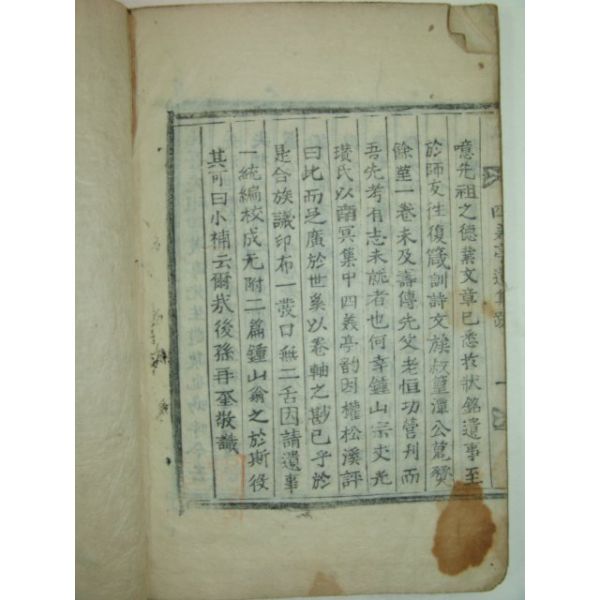 噫先祖之德業文章已悉於狀銘遺事至
於師友往復箴訓詩文族叔篁潭公篤
餘芼一卷未及壽傳先父老恒功營刊而
吾先考有志未就者也何幸鍾山宗丈光
瓚氏以南冥集中四義亭韵因權松溪評
曰此而乏廣於世奚以卷軸之尠已乎於
是合族議印布一發口無二舌因請遺事
一統編校成无附二篇鍾山翁之於斯役
其可曰小補云爾哉後孫再奎敬識
四義亭遺集跋
一